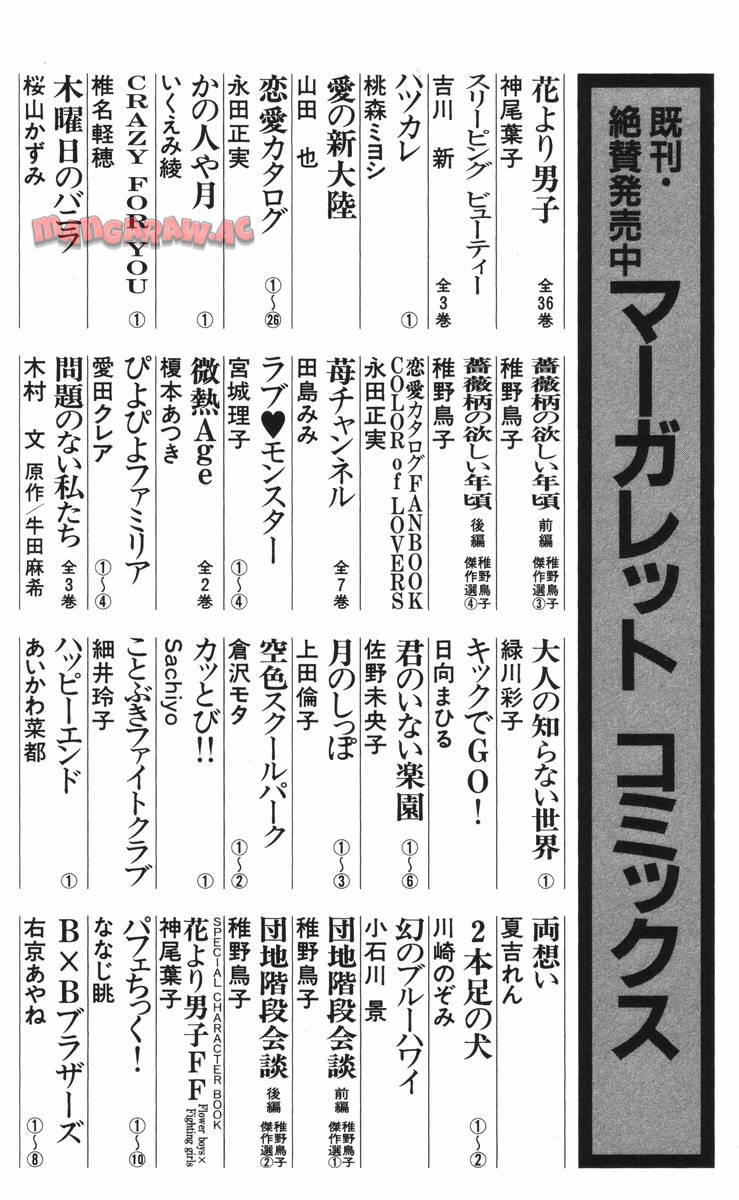 既刊・
絶賛発売中
マーガレット コミックス
花より男子 全36巻
神尾葉子
スリーピング ビューティー 全3巻
吉川 新
ハツカレ ①
桃森ミヨシ
愛の新大陸
山田 也
恋愛カタログ ①〜㉖
永田正実
かの人や月 ①
いくえみ綾
CRAZY FOR YOU ①
椎名軽穂
木曜日のバニラ
桜山かずみ
薔薇柄の欲しい年頃 前編 稚野鳥子傑作選③
稚野鳥子
薔薇柄の欲しい年頃 後編 稚野鳥子傑作選④
稚野鳥子
恋愛カタログFANBOOK
COLOR of LOVERS
永田正実
苺チャンネル 全7巻
田島みみ
ラブ♥モンスター ①〜④
宮城理子
微熱Age 全2巻
榎本あつき
ぴよぴよファミリア ①〜④
愛田クレア
問題のない私たち 全3巻
木村 文 原作/牛田麻希
大人の知らない世界 ①
緑川彩子
キックでGO!
日向まひる
君のいない楽園 ①〜⑥
佐野未央子
月のしっぽ ①〜③
上田倫子
空色スクールパーク ①〜②
倉沢モタ
カッとび!! ①
Sachiyo
ことぶきファイトクラブ
細井玲子
ハッピーエンド ①
あいかわ菜都
両想い
夏吉れん
2本足の犬 ①〜②
川崎のぞみ
幻のブルーハワイ
小石川 景
団地階段会談 前編 稚野鳥子傑作選①
稚野鳥子
団地階段会談 後編 稚野鳥子傑作選②
稚野鳥子
SPECIAL CHARACTER BOOK
花より男子FF Flower boys×Fighting girls
神尾葉子
パフェちっく! ①〜⑩
ななじ眺
B×Bブラザーズ ①〜⑧
右京あやね
MANGARAW.AC